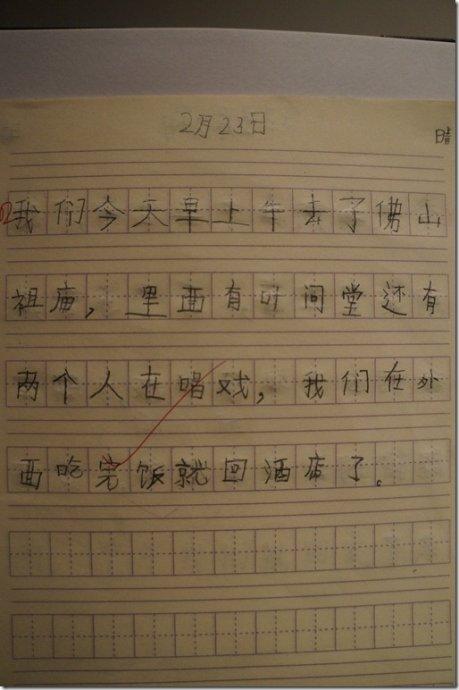 2月23日
晴
我们今天早上午去了佛山
祖庙，里面有叶问堂还有
两个人在唱戏，我们在外
面吃完饭就回酒店了。